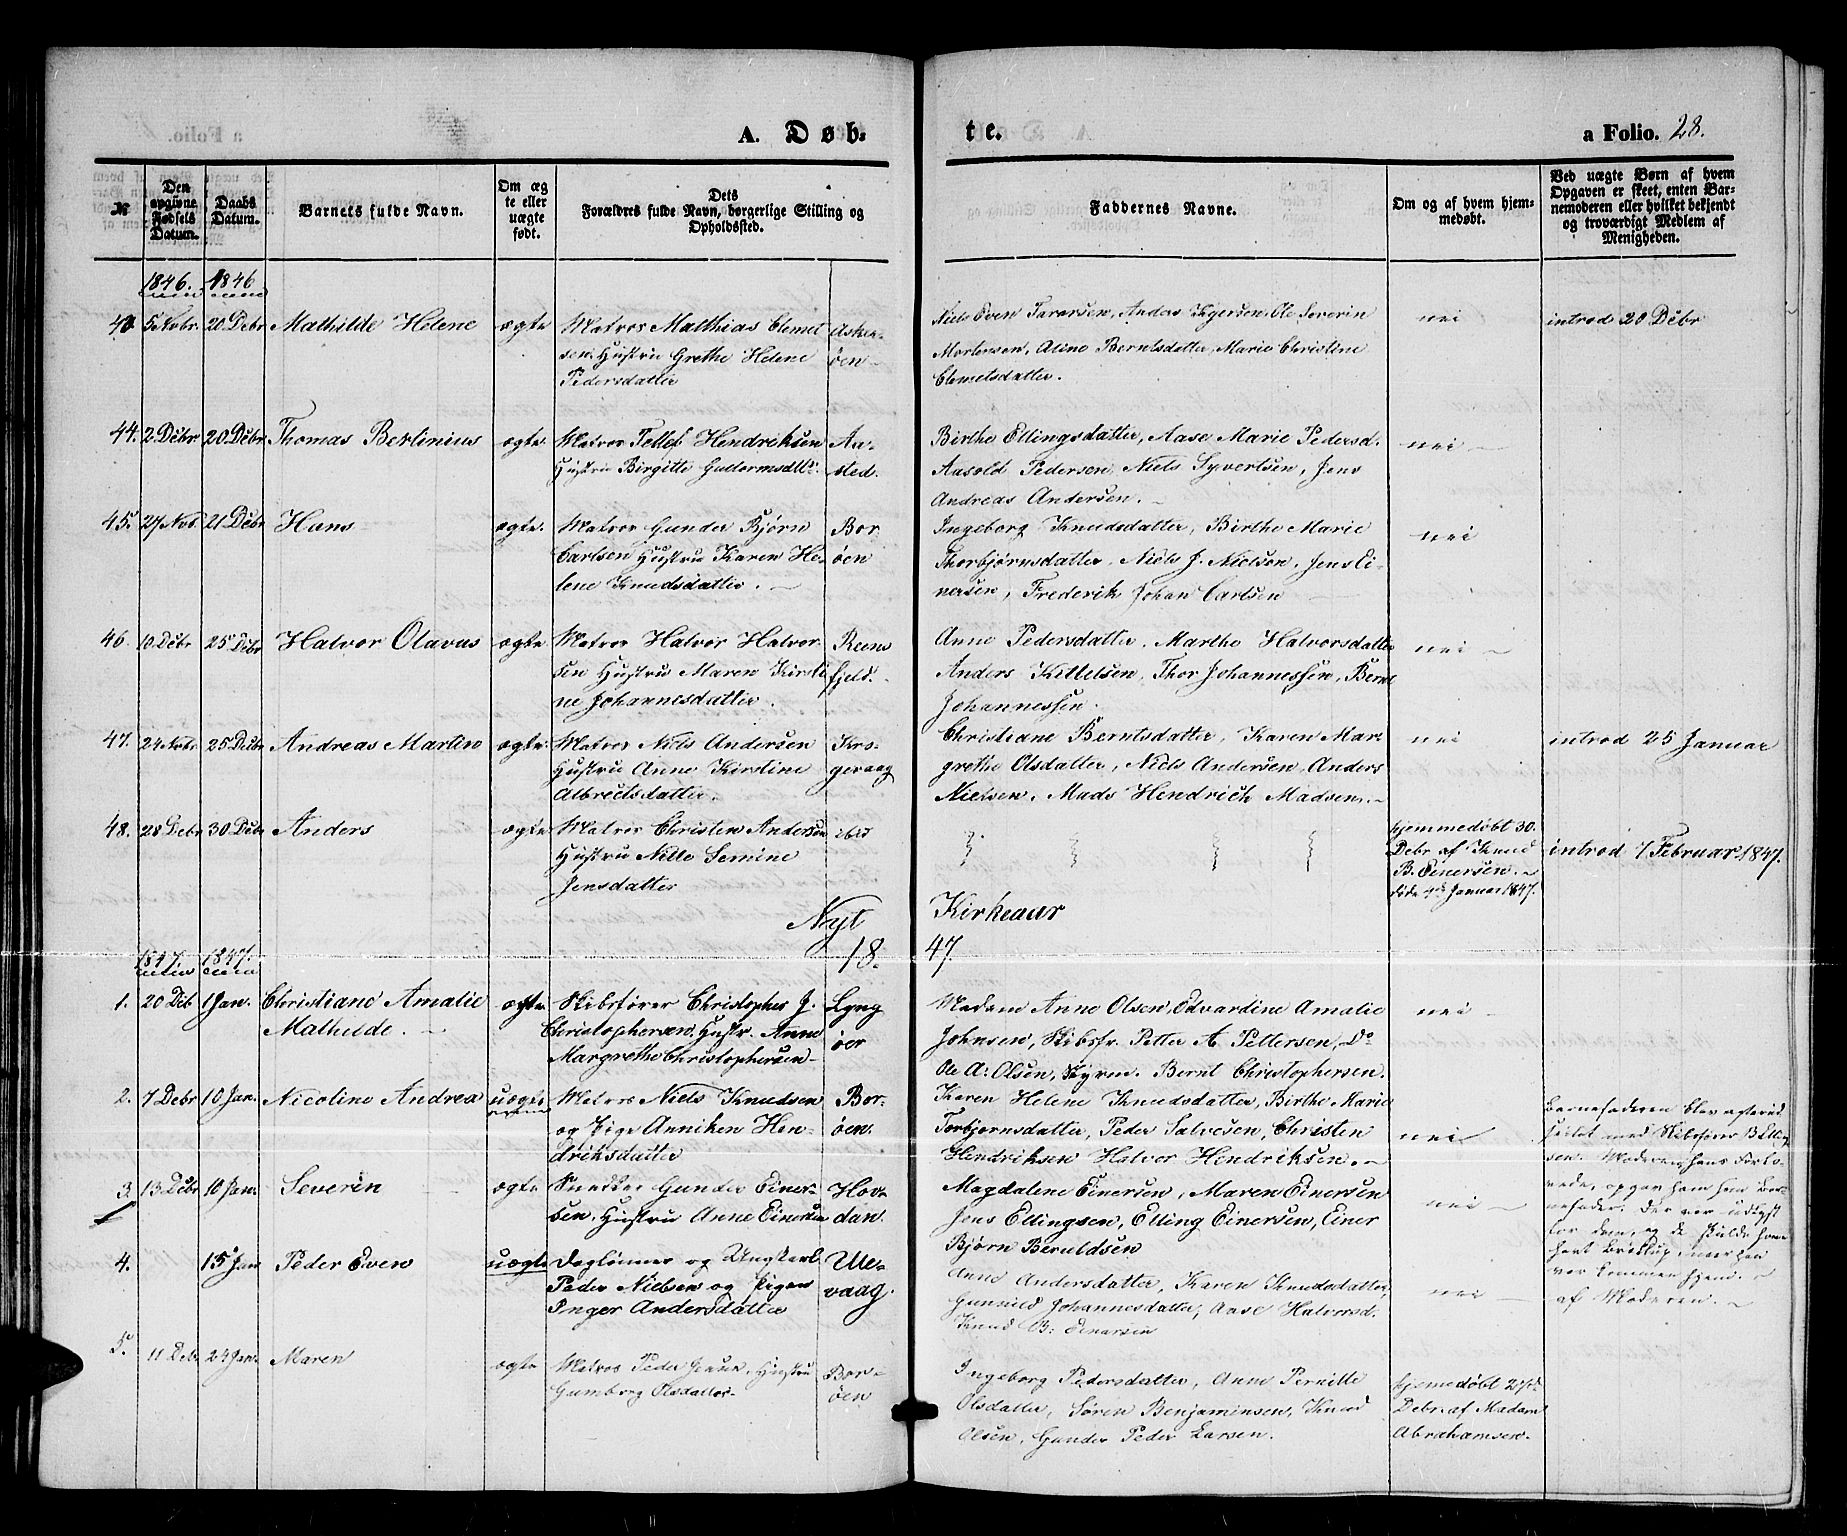 A. Døb-
te.
a Folio. 28.
№
Den opgivne Fødsels Datum.
Daabs Datum.
Barnets fulde Navn.
Om ægte eller uægte født.
Dets Forældres fulde Navn, borgerlige Stilling og Opholdssted.
Faddernes Navne.
Om og af hvem hjemmedøbt.
Ved uægte Børn af hvem Opgaven er skeet, enten Barnemoderen eller hvilket bekjendt og troværdigt Medlem af Menigheden.
1846. 1846
5 Novbr 20 Debr Mathilde Helene ægte Matros Matthias Clemet
sen. Hustru Grethe Helene
Pedersdatter
Asker
øen
Niels Even Tararsen, Anders
Ole Severin
Mortensen, Aline Berntsdatter, Marie Christine
Clemetsdatter.
nei
introd 20 Debr
44. 2 Debr 20 Debr Thomas Berlinius ægte Matros Tellef Hendriksen
Hustru Birgitte Guttormsdtr.
Aa-
sted.
Birthe Ellingsdatter, Aase Marie Pedersd.
Aasold Pedersen, Niels Syvertsen, Jens
Andreas Andersen.
nei
45. 27 Nov. 21 Debr Hans ægte. Matros Gunder Bjørn
Carlsen Hustru Karen He-
lene Knudsdatter.
Bor
øen
Ingeborg Knudsdatter, Birthe Marie
Thorbjørnsdatter, Niels J. Nielsen, Jens Ei-
nersen, Frederik Johan Carlsen
nei
46. 10 Debr 25 Debr Halvor Olavus ægte Matros Halvor Halvor
sen Hustru Maren Kirsti
ne Johannesdatter.
Reens
fjeld.
Anne Pedersdatter, Marthe Halvorsdatter
Anders Kittelsen, Thor Johannessen, Bernt
Johannessen.
nei
47. 24 Novbr 25 Debr Andreas Martin ægte Matros Niels Andersen
Hustru Anne Kirstine
Albretsdatter.
Kro-
geraag
Christiane Berntsdatter, Karen Mar
grethe Olsdatter, Niels Andersen, Anders
Nielsen, Mads Hendrich Madsen.
nei
introd 25 Januar
48. 28 Debr 30 Debr Anders ægte Matros Christen Andersen
Hustru Nille Semine
Jensdatter
ibid
hjemmedøbt 30.
Debr af Knud
B. Einersen.
døde 4de Januar 1847.
introd 7 Februar 1847.
Nyt Kirkeaar
18. 47.
1847. 1847.
1. 20 Deb 1 Jan. Christiane Amalie
Mathilde.
ægte Skibsfører Christopher J.
Christophersen, Hustr. Anne
Margrethe Christophersen
Lyng
øer
Madam Anne Olsen, Edvardine Amalie
Johnsen, Skibsfr. Petter A. Pettersen, Do
Ole A: Olsen, Styrm. Bernt Christophersen.
nei
2. 7 Debr 10 Jan. Nicoline Andrea uægte Matros Niels Knudsen
og Pige Anniken Hen-
driksdatter
Bor-
øen.
Karen Helene Knudsdatter, Birthe Marie
Torbjornsdatter, Peder Salvesen, Christen
Hendriksen Halvor Hendriksen.
nei
Barnefaderen blev
med Skibsfører B Elling
sen. Moderen, hans Forlo-
vede, opgav ham som Bar-
nefader. Der var udlyst
for dem, og de skulde have
havt Bryllup, naar han
var kommen hjem.
3. 13 Debr 10 Jan. Severin ægte Snedker Gunder Einer-
sen, Hustru Anne Einersen
Hov-
dan.
Magdalene Einersen, Maren Einersen
Jens Ellingsen, Elling Einersen, Einer
Bjørn Beruldsen
nei
4. 15 Jan Peder Even uægte Daglønner og Ungkarl
Peder Nielsen og Pigen
Inger Andersdatter
Ule-
vaag.
Anne Andersdatter, Karen Knudsdatter,
Gunnild Johannesdatter, Aase Halvorsd.
Knud B: Einersen
nei
af Moderen.
5. 11 Debr 24 Jan. Maren ægte Matros Peder Jensen, Hustru
Gumborg Olsdatter
Bor-
øen
Ingeborg Pedersdatter, Anne Pernille
Olsdatter, Søren Benjaminsen, Knud
Olsen, Gunder Peder Larsen.
hjemmedøbt 27de
Debr. af Madam
Abrahamsen.